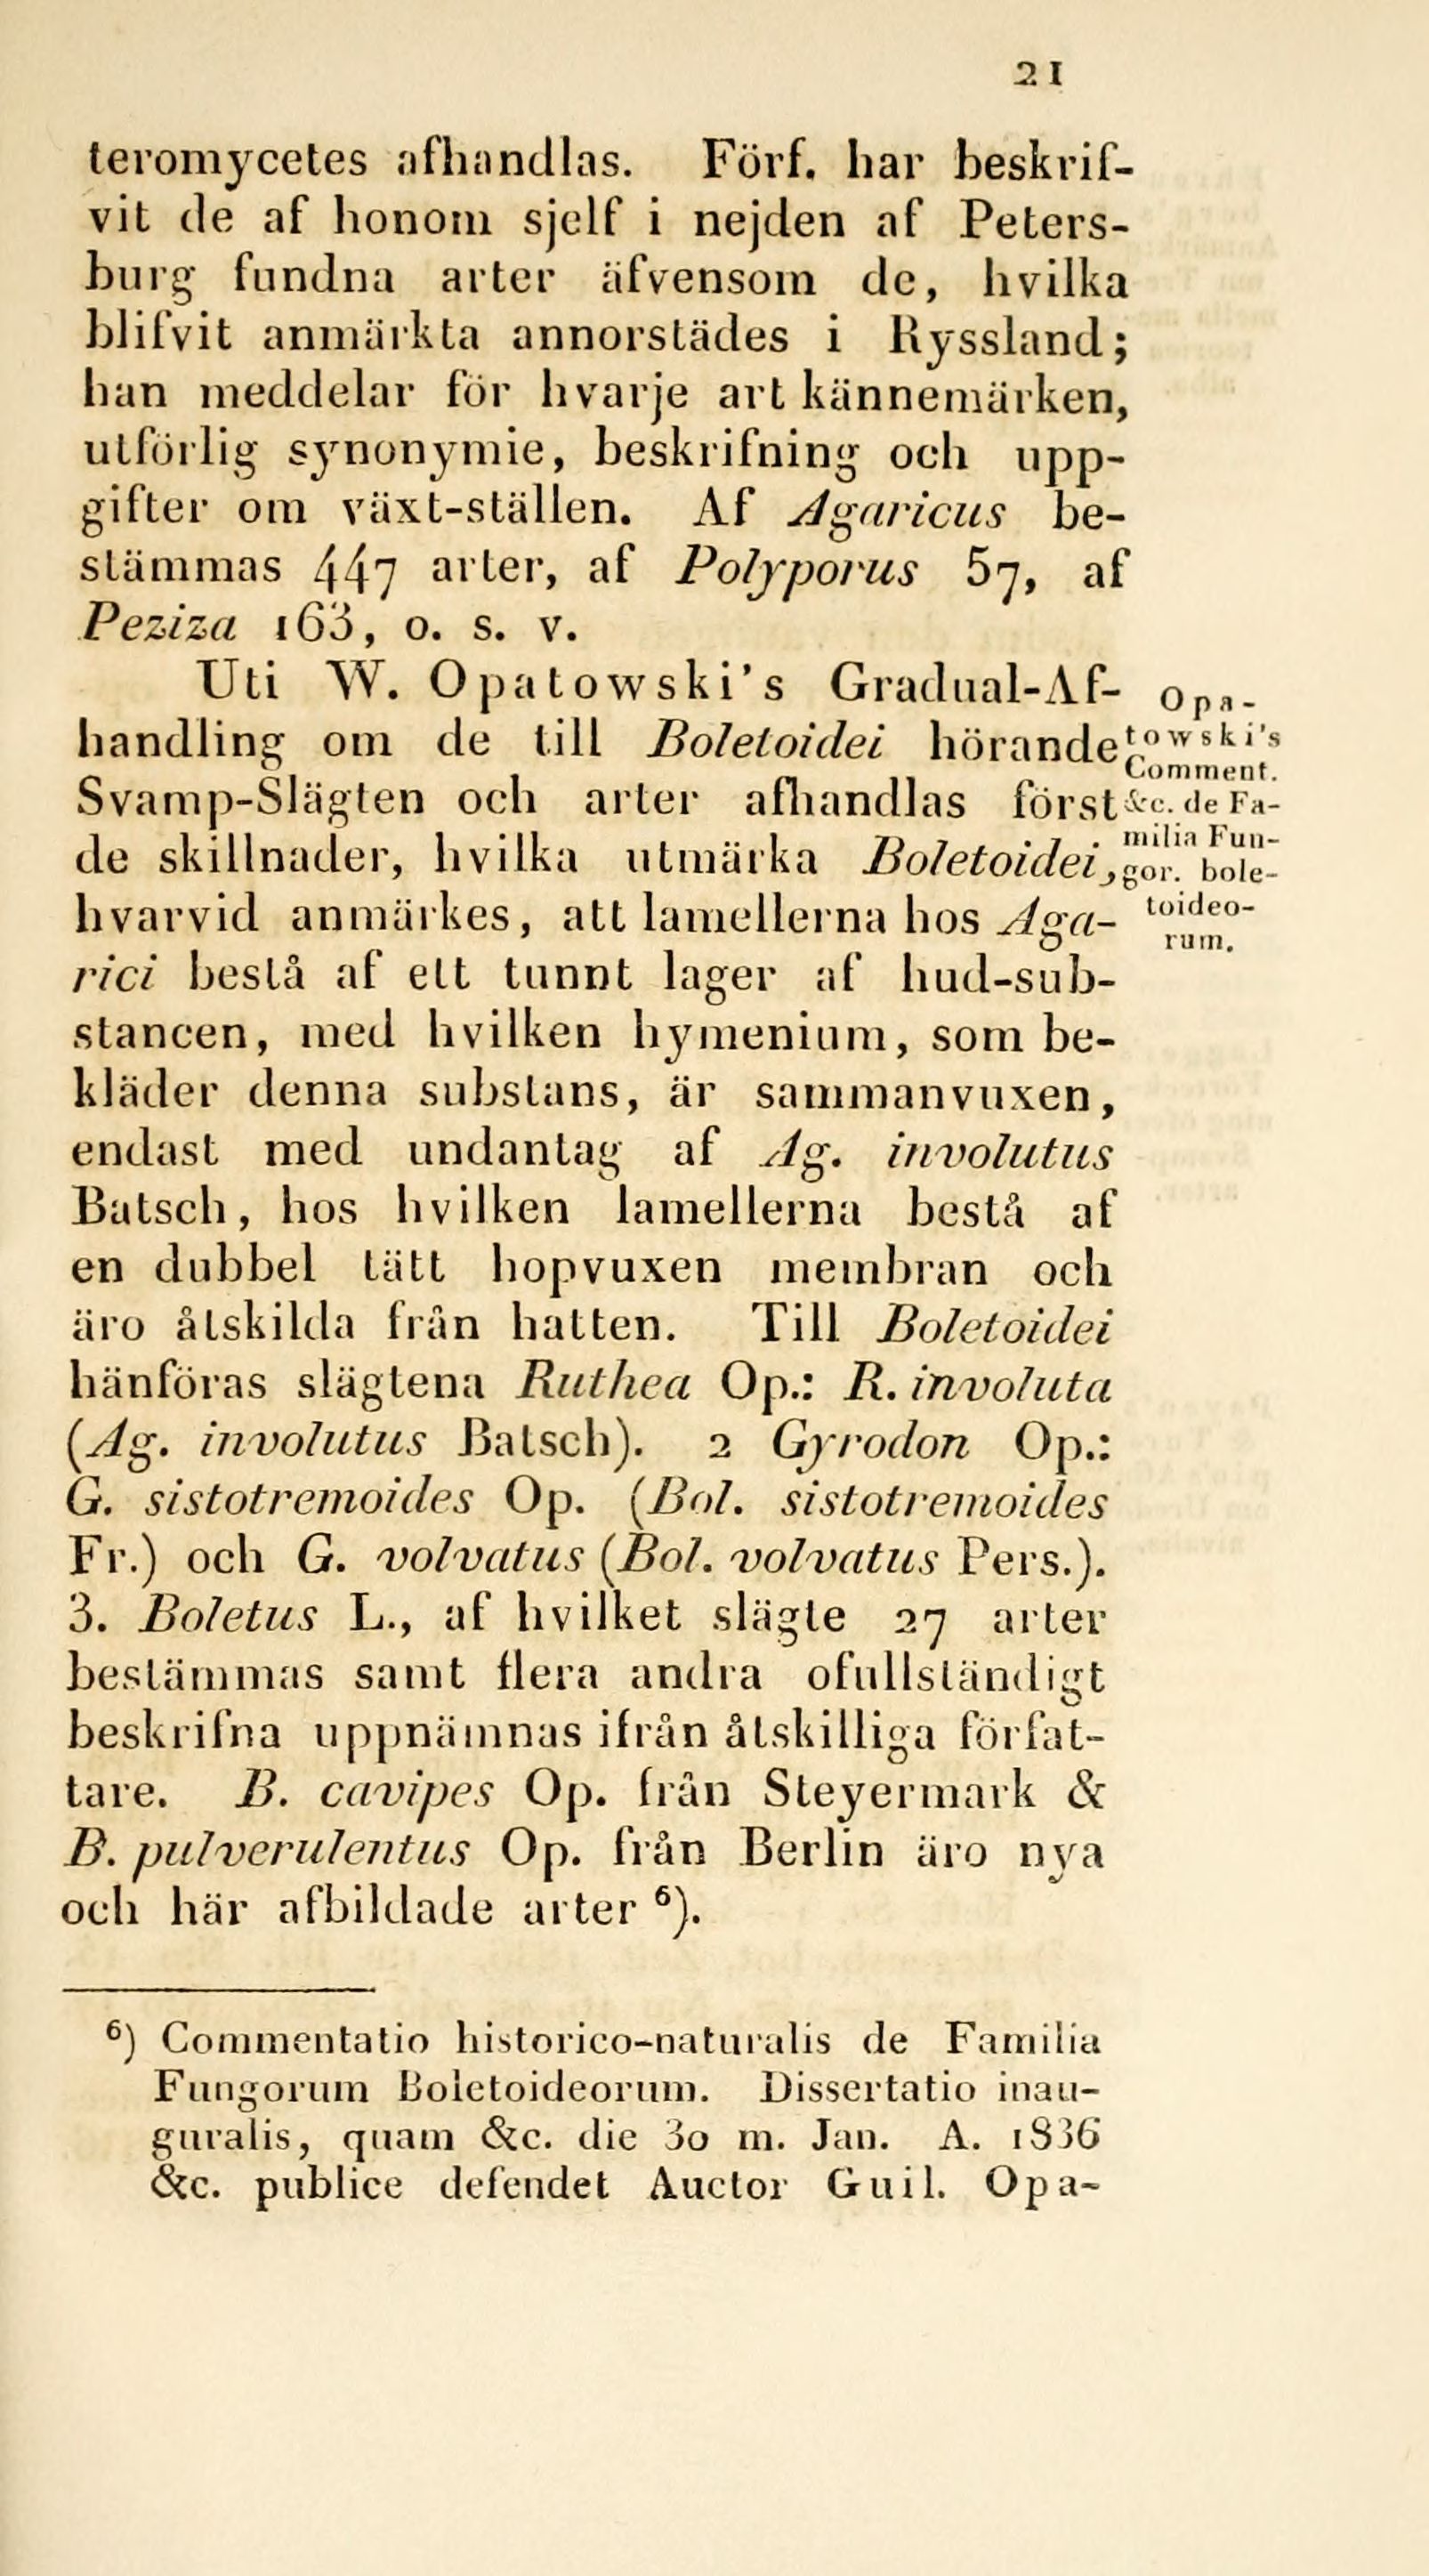 21
teromycetes afhandlas. Förf. har beskrif-
vit de af honom sjelf i nejden af Peters-
burg fundna arter äfvensom de, hvilka
blifvit anmärkta annorstädes i Ryssland;
han meddelar för hvarje art kännemärken,
utförlig synonymie, beskrifning och upp-
gifter om växt-ställen. Af Agaricus be-
stämmas 447 arter, af Polyporus 57, af
Peziza 163, o. s. v.
Uti W. Opatowski's Gradual-Af-
handling om de till Boletoidei hörande
Svamp-Slägten och arter afhandlas först
de skillnader, hvilka utmärka Boletoidei,
hvarvid anmärkes, att lamellerna hos Aga-
rici bestå af ett tunnt lager af hud-sub-
stancen, med hvilken hymenium, som be-
kläder denna substans, är sammanvuxen,
endast med undantag af Ag. involutus
Batsch, hos hvilken lamellerna bestå af
en dubbel tätt hopvuxen membran och
äro åtskilda från hatten. Till Boletoidei
hänföras slägtena Ruthea Op.: R. involuta
(Ag. involutus Batsch). 2 Gyrodon Op.:
G. sistotremoides Op. (Bol. sistotremoides
Fr.) och G. volvatus (Bol. volvatus Pers.).
3. Boletus L., af hvilket slägte 27 arter
bestämmas samt flera andra ofullständigt
beskrifna uppnämnas ifrån åtskilliga förfat-
tare. B. cavipes Op. från Steyermark &
B. pulverulentus Op. från Berlin äro nya
och här afbildade arter ⁶).
Opa-
towski's
Comment.
&c. de Fa-
milia Fun-
gor. bole-
toideo-
rum.
⁶) Commentatio historico-naturalis de Familia
Fungorum Boletoideorum. Dissertatio inau-
guralis, quam &c. die 30 m. Jan. A. 1836
&c. publice defendet Auctor Guil. Opa-